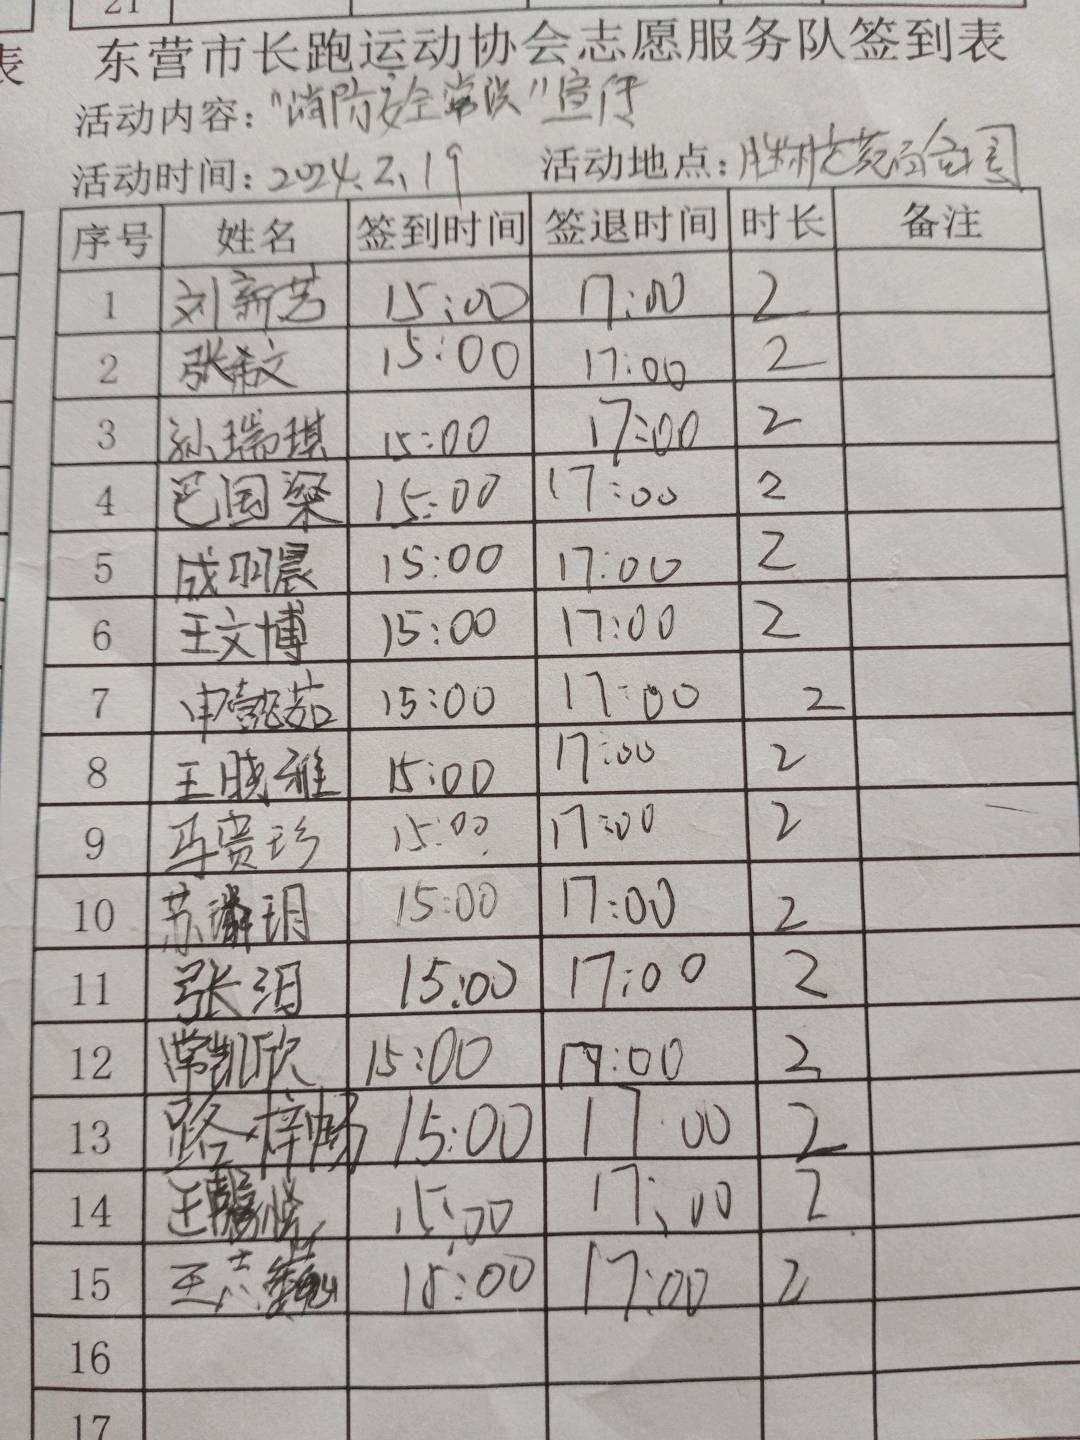 21
表
东营市长跑运动协会志愿服务队签到表
活动内容："消防安全常识"宣传
活动时间：2024.2.19 活动地点：
序号 姓名 签到时间 签退时间 时长 备注
1 刘新芳 15:00 17:00 2
2 张希文 15:00 17:00 2
3 孙瑞琪 15:00 17:00 2
4 巴国梁 15:00 17:00 2
5 成羽晨 15:00 17:00 2
6 王文博 15:00 17:00 2
7 申懿茹 15:00 17:00 2
8 王晓雅 15:00 17:00 2
9 马贵珍 15:00 17:00 2
10 苏 玥 15:00 17:00 2
11 张汨 15:00 17:00 2
12 常凯欣 15:00 17:00 2
13 路梓畅 15:00 17:00 2
14 王馨悦 15:00 17:00 2
15 王志 15:00 17:00 2
16
17